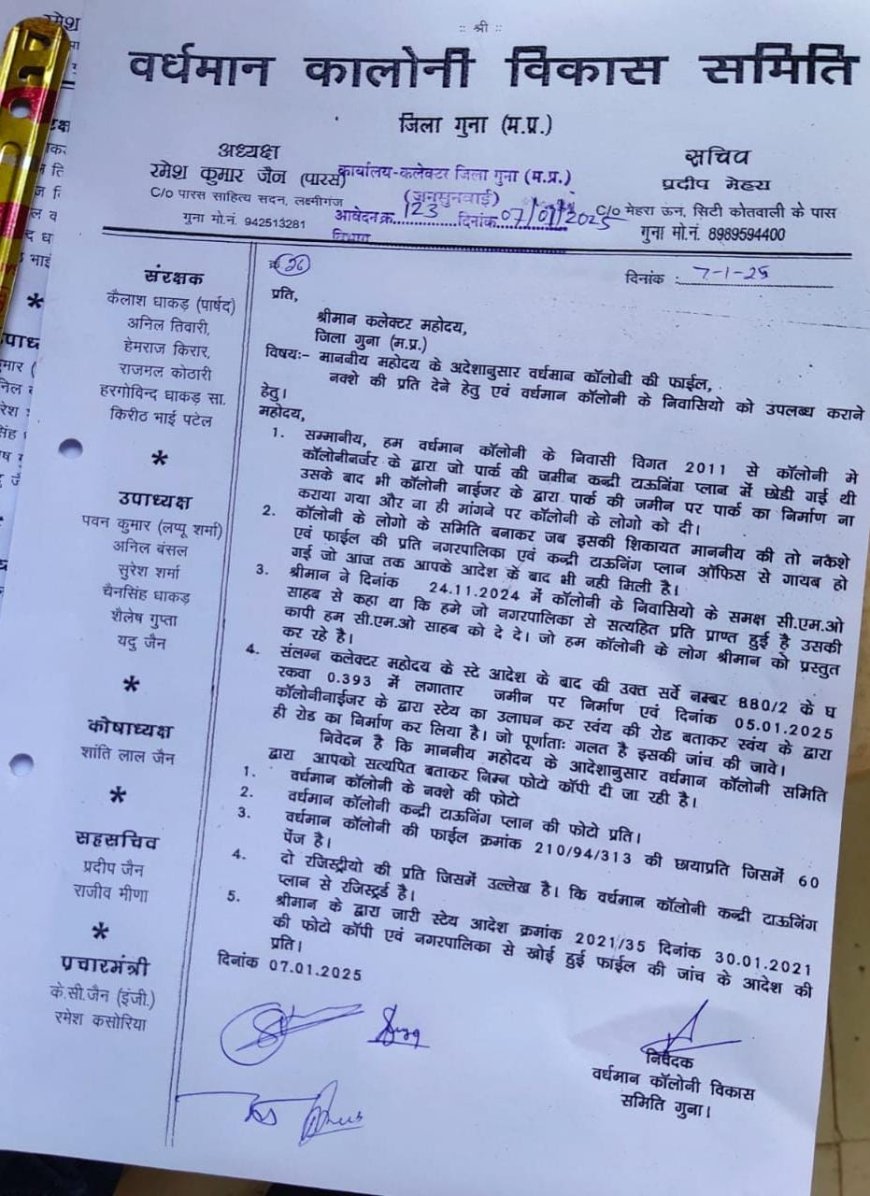 :: श्री ::
वर्धमान कालोनी विकास समिति
जिला गुना (म.प्र.)
अध्यक्ष
रमेश कुमार जैन (पारस)
C/o पारस साहित्य सदन, लक्ष्मीगंज
गुना मो.नं. 942513281
कार्यालय-कलेक्टर जिला गुना (म.प्र.)
(जनसुनवाई)
आवेदन क्र. 123 दिनांक 07/01/2025
विभाग
सचिव
प्रदीप मेहरा
C/o मेहरा ऊन, सिटी कोतवाली के पास
गुना मो.नं. 8989594400
संरक्षक
कैलाश धाकड़ (पार्षद)
अनिल तिवारी,
हेमराज किरार,
राजमल कोठारी
हरगोविन्द धाकड़ सा.
किरीठ भाई पटेल
*
उपाध्यक्ष
पवन कुमार (लप्पू शर्मा)
अनिल बंसल
सुरेश शर्मा
चैनसिंह धाकड़
शैलेष गुप्ता
यदु जैन
*
कोषाध्यक्ष
शांति लाल जैन
*
सहसचिव
प्रदीप जैन
राजीव मीणा
*
प्रचारमंत्री
के.सी.जैन (इंजी.)
रमेश कसोरिया
क्र 26
दिनांक : 7-1-25
प्रति,
श्रीमान कलेक्टर महोदय,
जिला गुना (म.प्र.)
विषयः- माननीय महोदय के अदेशानुसार वर्धमान कॉलोनी की फाईल,
नक्शे की प्रति देने हेतु एवं वर्धमान कॉलोनी के निवासियो को उपलब्ध कराने
हेतु।
महोदय,
1. सम्मानीय, हम वर्धमान कॉलोनी के निवासी विगत 2011 से कॉलोनी मे
कॉलोनीनर्जर के द्वारा जो पार्क की जमीन कन्द्री टाऊनिंग प्लान में छोडी गई थी
उसके बाद भी कॉलोनी नाईजर के द्वारा पार्क की जमीन पर पार्क का निर्माण ना
कराया गया और ना ही मांगने पर कॉलोनी के लोगो को दी।
2. कॉलोनी के लोगो के समिति बनाकर जब इसकी शिकायत माननीय की तो नकेशे
एवं फाईल की प्रति नगरपालिका एवं कन्द्री टाऊनिंग प्लान ऑफिस से गायब हो
गई जो आज तक आपके आदेश के बाद भी नही मिली है।
3. श्रीमान ने दिनांक 24.11.2024 में कॉलोनी के निवासियो के समक्ष सी.एम.ओ
साहब से कहा था कि हमे जो नगरपालिका से सत्यहित प्रति प्राप्त हुई है उसकी
कापी हम सी.एम.ओ साहब को दे दे। जो हम कॉलोनी के लोग श्रीमान को प्रस्तुत
कर रहे है।
4. संलग्न कलेक्टर महोदय के स्टे आदेश के बाद की उक्त सर्वे नम्बर 880/2 के घ
रकवा 0.393 में लगातार जमीन पर निर्माण एवं दिनांक 05.01.2025
कॉलोनीनाईजर के द्वारा स्टेय का उलाघन कर स्वंय की रोड बताकर स्वंय के द्वारा
ही रोड का निर्माण कर लिया है। जो पूर्णताः गलत है इसकी जांच की जावे।
निवेदन है कि माननीय महोदय के आदेशानुसार वर्धमान कॉलोनी समिति
द्वारा आपको सत्यपित बताकर निम्न फोटो कॉपी दी जा रही है।
1. वर्धमान कॉलोनी के नक्शे की फोटो
2. वर्धमान कॉलोनी कन्द्री टाऊनिंग प्लान की फोटो प्रति।
3. वर्धमान कॉलोनी की फाईल क्रमांक 210/94/313 की छायाप्रति जिसमें 60
पेंज है।
4. दो रजिस्ट्रीयो की प्रति जिसमें उल्लेख है। कि वर्धमान कॉलोनी कन्द्री टाऊनिंग
प्लान से रजिस्ट्रर्ड है।
5. श्रीमान के द्वारा जारी स्टेय आदेश क्रमांक 2021/35 दिनांक 30.01.2021
की फोटो कॉपी एवं नगरपालिका से खोई हुई फाईल की जांच के आदेश की
प्रति।
दिनांक 07.01.2025
निवेदक
वर्धमान कॉलोनी विकास
समिति गुना।